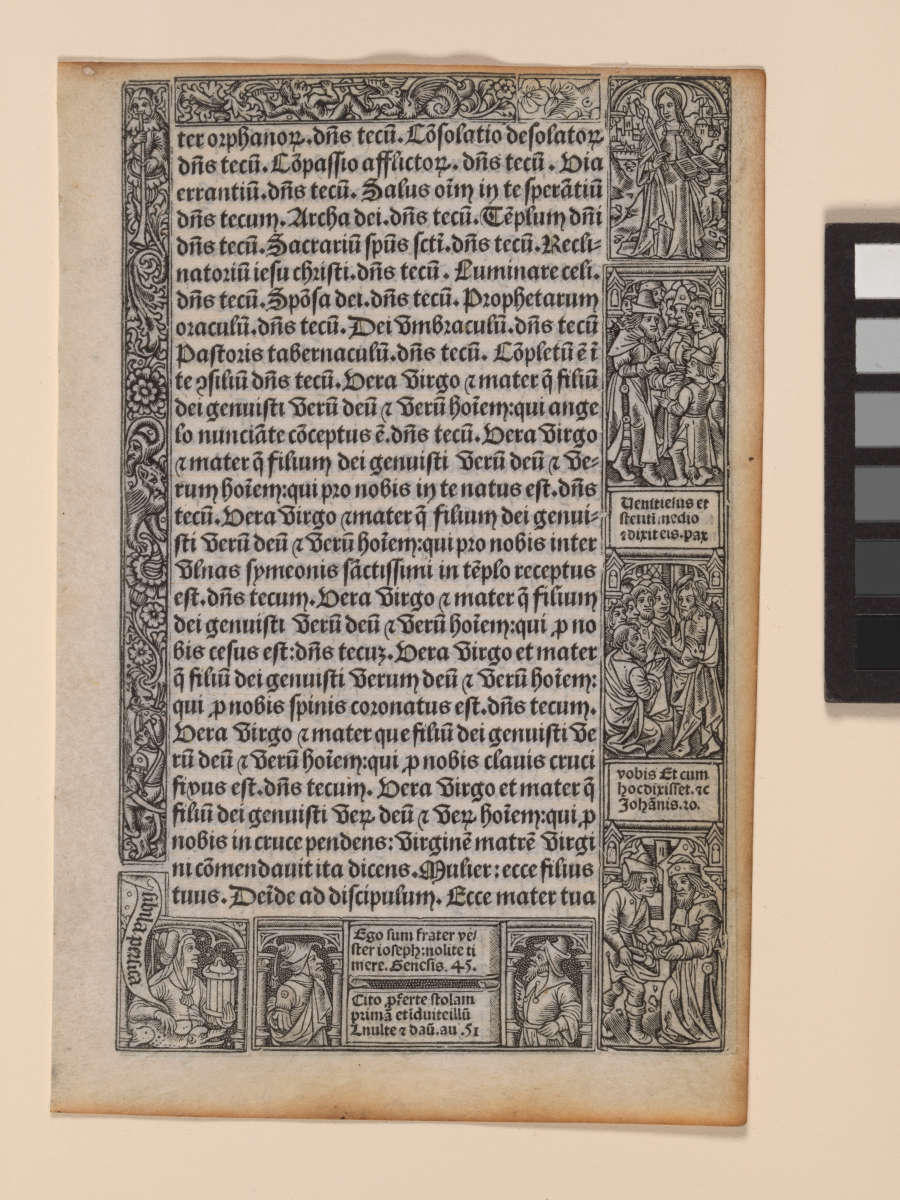 ter orphanoꝝ. dn̄s tecū. Cōsolatio desolatoꝝ
dn̄s tecū. Cōpassio afflictoꝝ. dn̄s tecū. Via
errantiū. dn̄s tecū. Salus oīm in te sperātiū
dn̄s tecum. Archa dei. dn̄s tecū. Tēplum dn̄i
dn̄s tecū. Sacrariū spūs sctī. dn̄s tecū. Recli-
natoriū iesu christi. dn̄s tecū. Luminare celi.
dn̄s tecū. Spōsa dei. dn̄s tecū. Prophetarum
oraculū. dn̄s tecū. Dei vmbraculū. dn̄s tecū
Pastoris tabernaculū. dn̄s tecū. Cōpletū ē ī
te ꝯsiliū dn̄s tecū. Vera virgo ⁊ mater q̄ filiū
dei genuisti verū deū ⁊ verū hoīem: qui ange
lo nunciāte cōceptus ē. dn̄s tecū. Vera virgo
⁊ mater q̄ filium dei genuisti verū deū ⁊ ve-
rum hoīem: qui pro nobis in te natus est. dn̄s
tecū. Vera virgo ⁊ mater q̄ filium dei genui-
sti verū deū ⁊ verū hoīem: qui pro nobis inter
vlnas symeonis sāctissimi in tēplo receptus
est. dn̄s tecum. Vera virgo ⁊ mater q̄ filium
dei genuisti verū deū ⁊ verū hoīem: qui ꝓ no
bis cesus est: dn̄s tecuꝫ. Vera virgo et mater
q̄ filiū dei genuisti verum deū ⁊ verū hoīem:
qui ꝓ nobis spinis coronatus est. dn̄s tecum.
Vera virgo ⁊ mater que filiū dei genuisti ve
rū deū ⁊ verū hoīem: qui ꝓ nobis clauis cruci
fixus est. dn̄s tecum. Vera virgo et mater q̄
filiū dei genuisti veꝝ deū ⁊ veꝝ hoīem: qui ꝓ
nobis in cruce pendens: virginē matrē virgi
ni cōmendauit ita dicens. Mulier: ecce filius
tuus. Deīde ad discipulum. Ecce mater tua
Venit iesus et
stetit ī medio
⁊ dixit eis. pax
vobis Et cum
hoc dixisset. ⁊c
Johānis. 20.
sibila persica
Ego sum frater ve/
ster ioseph: nolite ti
mere. Genesis. 45.
Cito ꝓferte stolam
primā et iduite illū